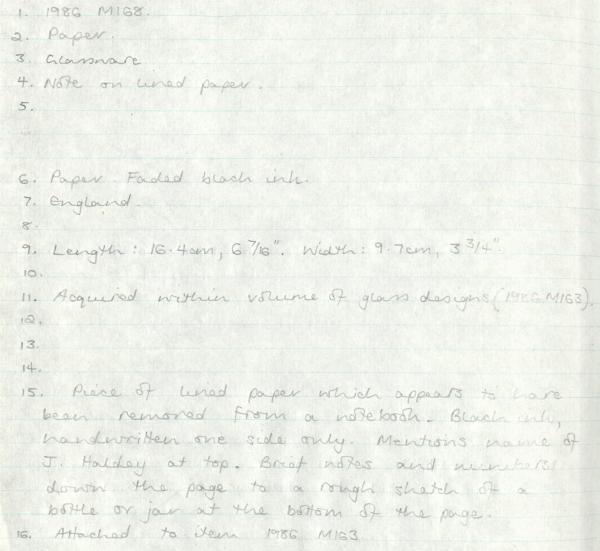 1. 1986 M168.
2. Paper.
3. Glassware
4. Note on lined paper.
5.
6. Paper. Faded black ink.
7. England.
8.
9. Length: 16.4cm, 6 7/16". Width: 9.7cm, 3 3/4".
10.
11. Acquired within volume of glass designs (1986 M163).
12.
13.
14.
15. Piece of lined paper which appears to have
been removed from a notebook. Black ink,
handwritten one side only. Mentions name of
J. at top. Brief notes and numbers
down the page to a rough sketch of a
bottle or jar at the bottom of the page.
16. Attached to item 1986 M163